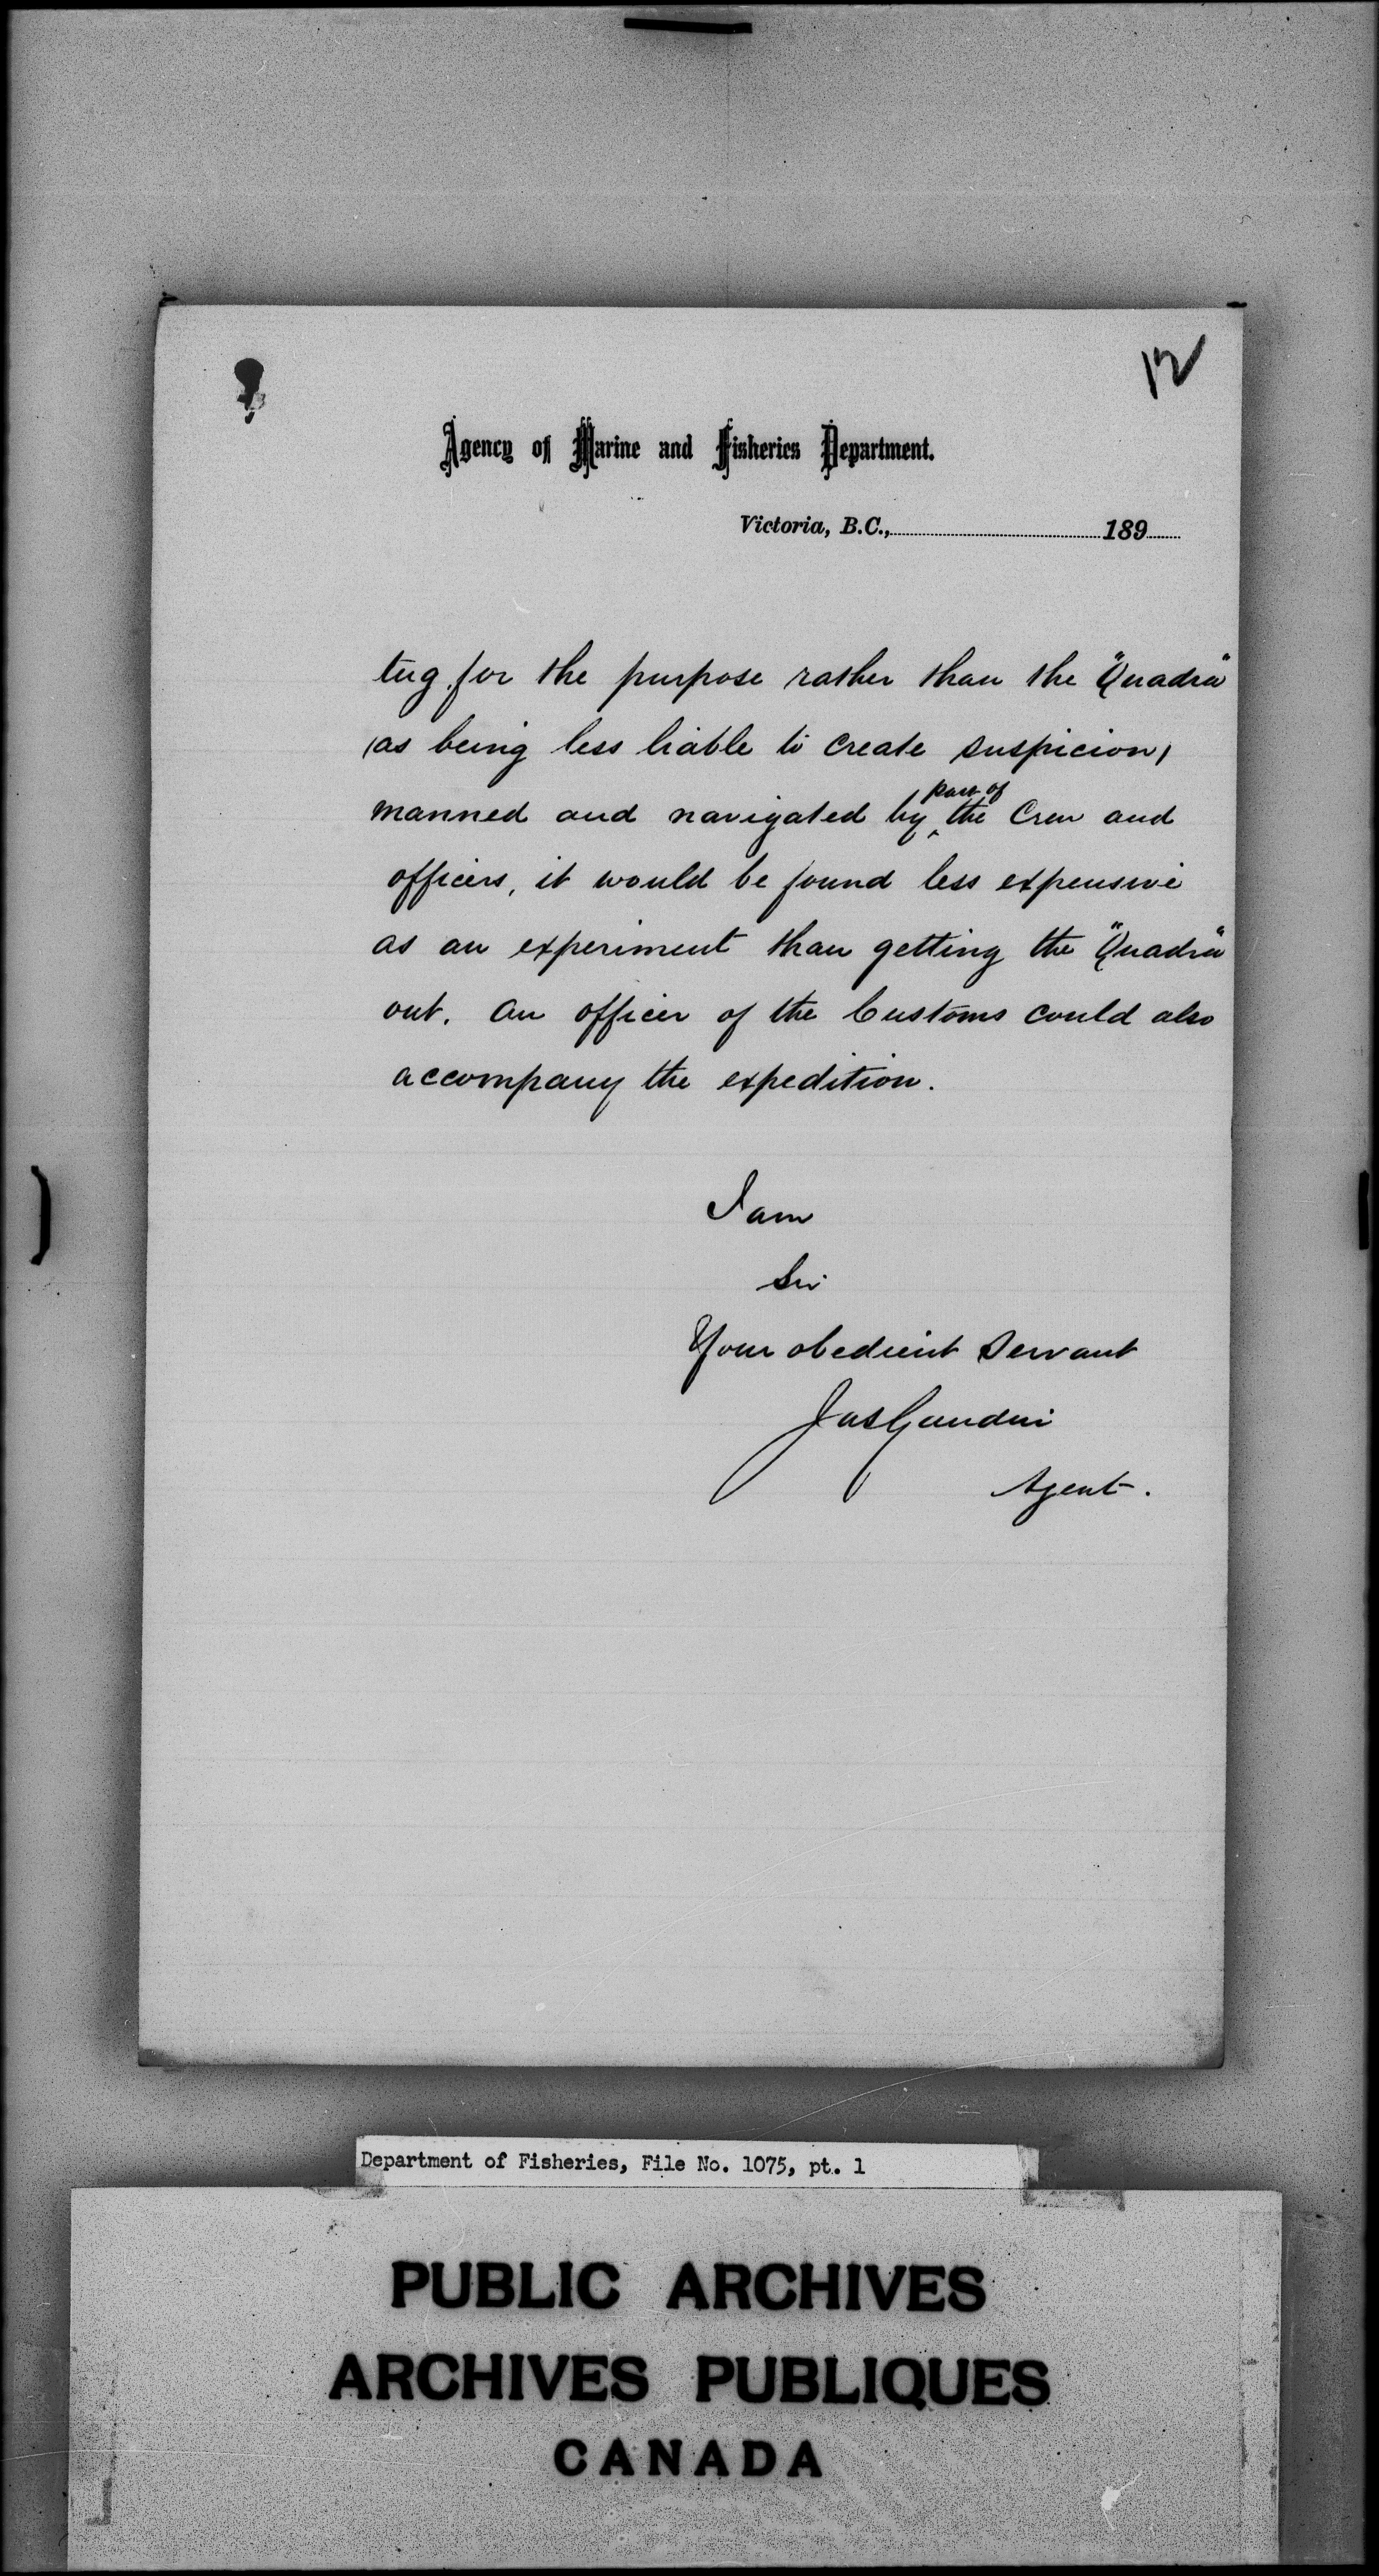 12
Agency of Marine and Fisheries Department.
Victoria, B.C., 189
tug for the purpose rather than the "Quadra"
(as being less liable to create suspicion)
manned and navigated by part of the Crew and
officers, it would be found less expensive
as an experiment than getting the "Quadra"
out. An officer of the Customs could also
accompany the expedition.
I am
Sir
Your obedient Servant
Jas Gaudin
Agent.
Department of Fisheries, File No. 1075, pt. 1
PUBLIC ARCHIVES
ARCHIVES PUBLIQUES
CANADA